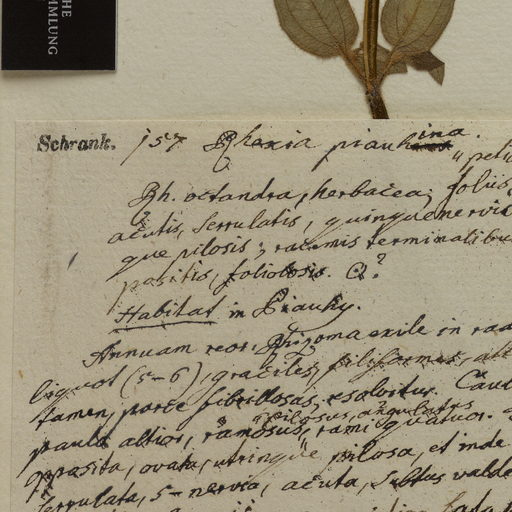 HE
MMLUNG
Schrank. 157 Rhexia piauhina.
" peti
Rh. octandra, herbacea; foliis
acutis, serrulatis, quinquenervi
que pilosis; racemis terminalibu
positis, foliolosis. ☉?
Habitat in Piauhy.
Annuam reor. Rhizoma exile in ra
liquot (5-6), graciles, filiformes, alt
tamen, porro fibrillosas, resolvitur. Cau
paulo altior, ramosus, rami quatuor.
" pilosus, angulatus
opposita, ovata, utrinque pilosa, et inde
serrulata, 5-nervia, acuta, subtus valde